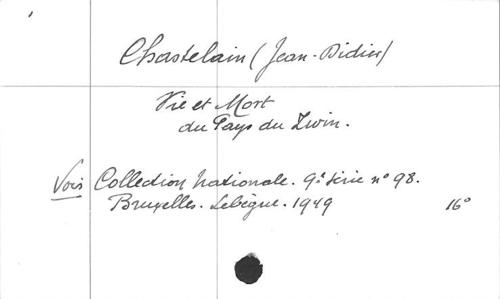 Chastelain (Jean-Didier)
Vie et Mort
du Pays du Zwin.
Voir Collection Nationale. 9e série n° 98.
Bruxelles. Lebègue. 1949 16°